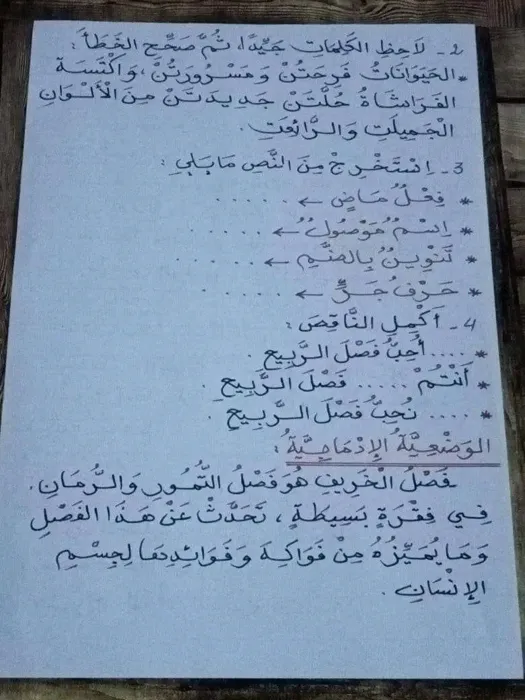 2- لَاحِظِ الكَلِمَاتِ جَيِّدًا، ثُمَّ صَحِّحِ الخَطَأَ :
.الحَيَوَانَاتُ فَرِحَتُنْ وَمَسْرُورَتُنْ، وَاكْتَسَة
الفَرَاشَاةُ حُلَّتَنْ جَدِيدَتَنْ مِنَ الأَلْوَانِ
الْجَمِيلَتِ وَالرَّائِعَتِ .
3- اِسْتَخْرِجْ مِنَ النَّصِ مَا يَلِي :
* فِعْلٌ مَاضٍ ← . . . . . .
* اِسْمٌ مَوْصُولٌ ← . . . . . .
* تَنْوِينٌ بِالضَّمِّ ← . . . . . .
* حَرْفُ جَرٍّ ← . . . . . .
4- أَكْمِلِ النَّاقِصَ :
* .... أُحِبُّ فَصْلَ الرَّبِيعِ .
* أَنْتُمْ ..... فَصْلَ الرَّبِيعِ .
* .... نُحِبُّ فَصْلَ الرَّبِيعِ .
الوَضْعِيَّةُ الإِدْمَاجِيَّةُ :
فَصْلُ الْخَرِيفِ هُوَ فَصْلُ التُّمُورِ وَالرُّمَانِ.
فِي فِقْرَةٍ بَسِيطَةٍ، تَحَدَّثْ عَنْ هَذَا الفَصْلِ
وَمَا يُمَيِّزُهُ مِنْ فَوَاكِهَ وَفَوَائِدِهَا لِجِسْمِ
الإِنْسَانِ .